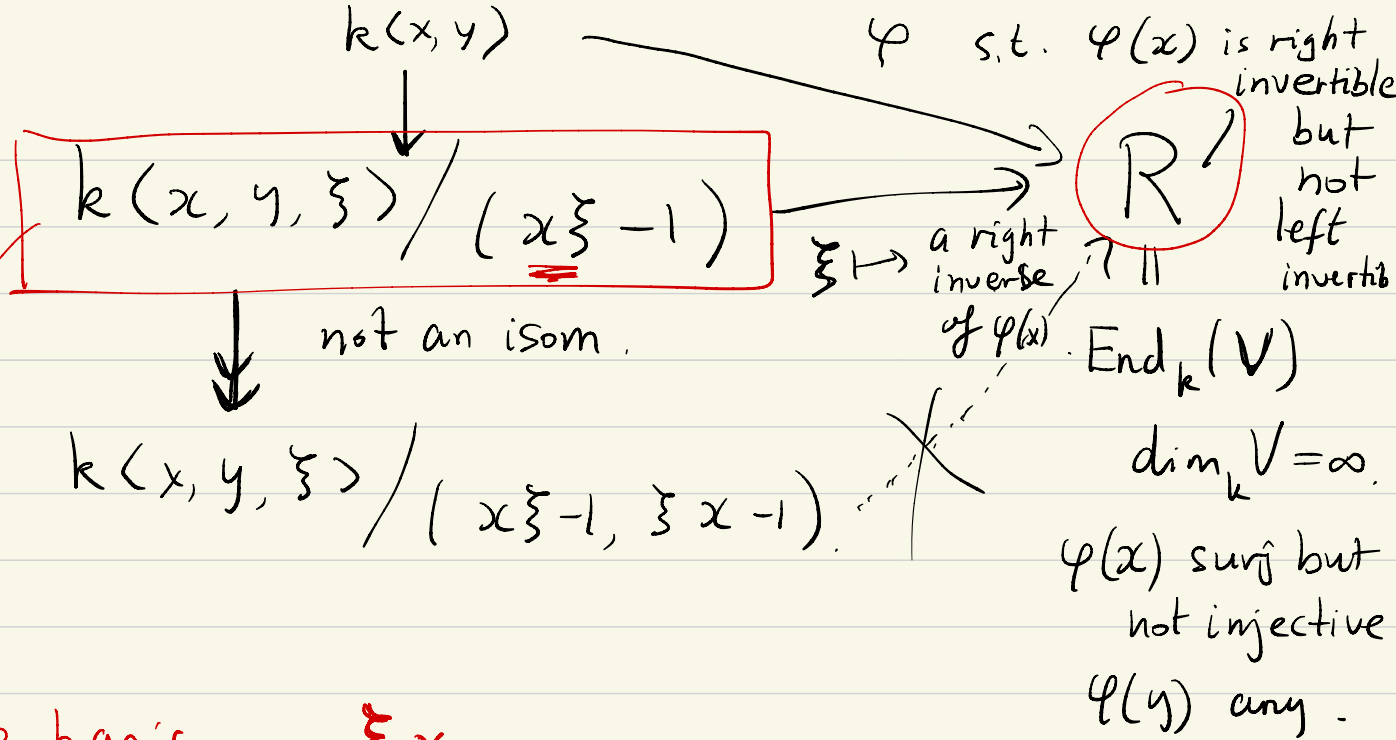 k⟨x, y⟩
φ s.t. φ(x) is right
invertible
but
not
left
invertib
R'
k⟨x, y, ξ⟩ / (xξ − 1)
ξ ↦ a right
inverse
of φ(x).
not an isom.
k⟨x, y, ξ⟩ / (xξ−1, ξx−1).
||
End_k(V)
dim_k V = ∞.
φ(x) surj but
not injective
φ(y) any.
basis ξx